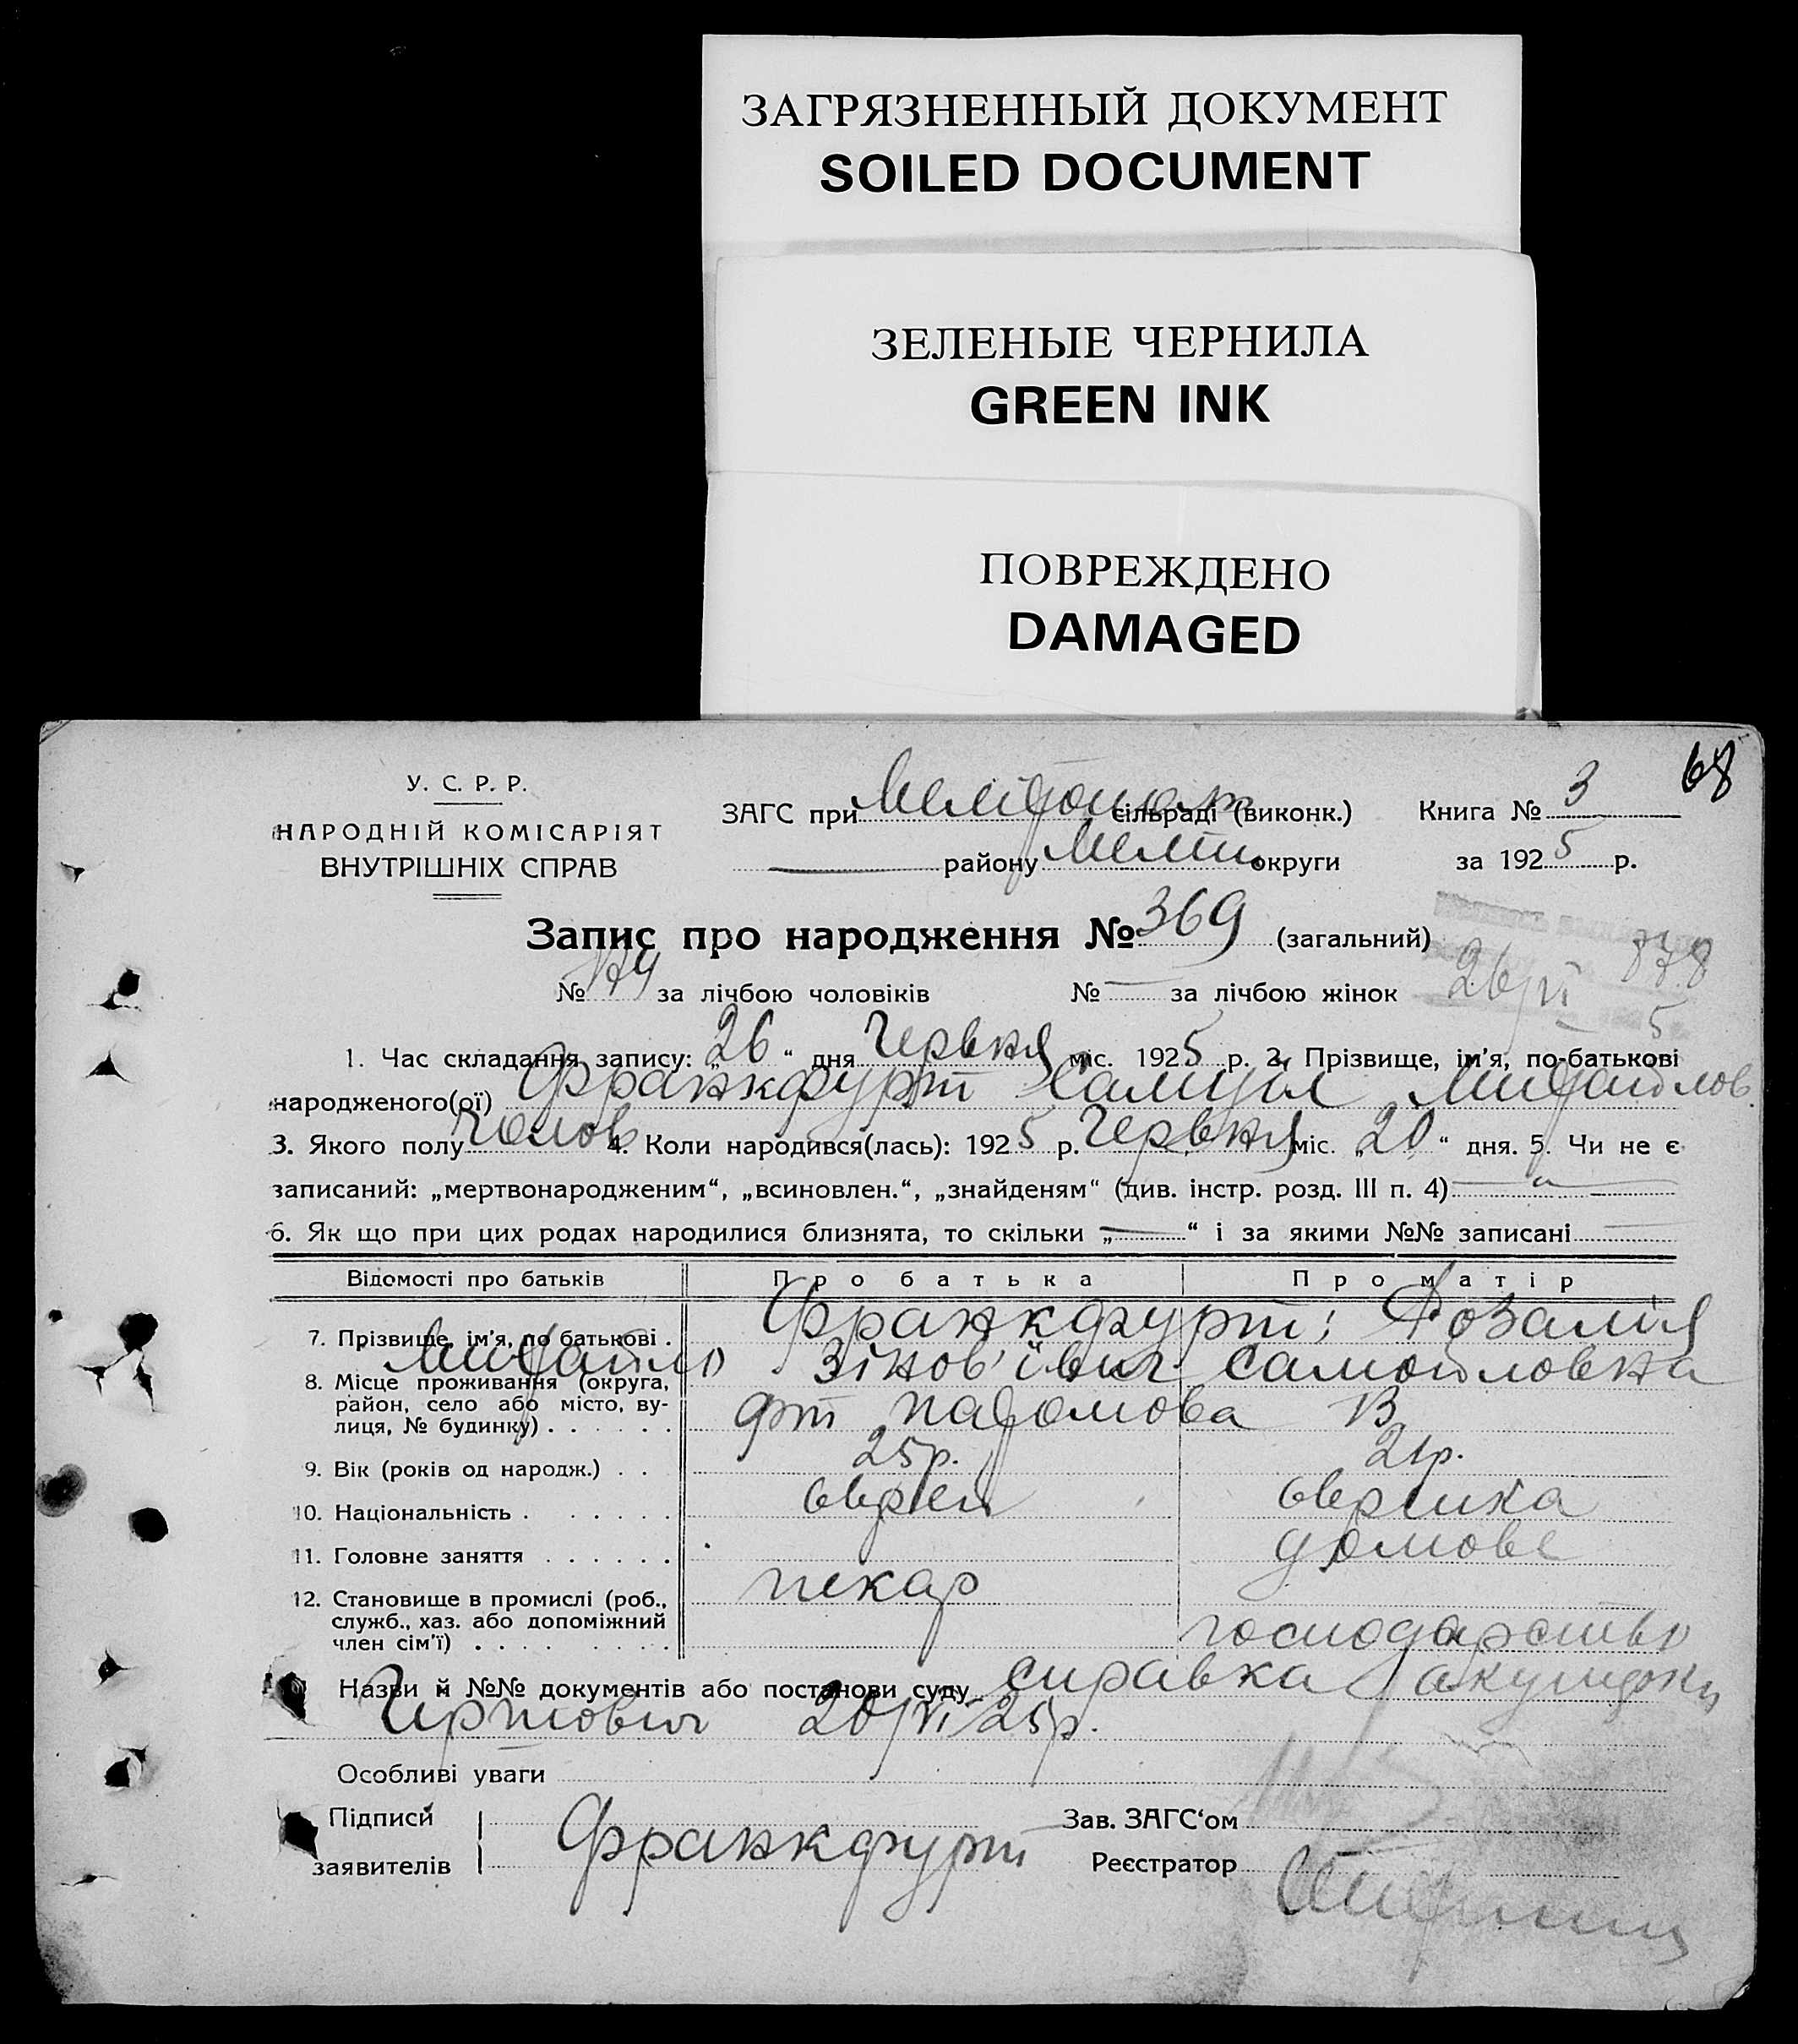 ЗАГРЯЗНЕННЫЙ ДОКУМЕНТ
SOILED DOCUMENT
ЗЕЛЕНЫЕ ЧЕРНИЛА
GREEN INK
ПОВРЕЖДЕНО
DAMAGED
68
У. С. Р. Р.
НАРОДНІЙ КОМІСАРІЯТ
ВНУТРІШНІХ СПРАВ
ЗАГС при сільраді (виконк.) Книга № 3
району Мелит. округи за 1925 р.
Запис про народження № 369 (загальний)
№ 174 за лічбою чоловіків № — за лічбою жінок
26/VI 878
5
1. Час складання запису: „26“ дня Червня міс. 1925 р. 2. Прізвище, ім'я, по-батькові
народженого(ої) Франкфурт Самуїл Михайлов.
3. Якого полу Чолов 4. Коли народився(лась): 1925 р. Червня міс. „20“ дня. 5. Чи не є
записаний: „мертвонародженим“, „всиновлен.“, „знайденям“ (див. інстр. розд. III п. 4) — „ —
6. Як що при цих родах народилися близнята, то скільки „—“ і за якими №№ записані —
Відомості про батьків Про батька Про матір
7. Прізвище, ім'я, по батькові . Франкфурт: Розалія
Михайло Зінов'івич Самойловна
8. Місце проживання (округа,
район, село або місто, вулиця, № будинку) . . . . . . Пахомова 13
9. Вік (років од народж.) . . 25р. 21р.
10. Національність . . . . . . еврей еврейка
11. Головне заняття . . . . . . домове
12. Становище в промислі (роб., пекар
служб., хаз. або допоміжний
член сім'ї) . . . . . . . . господарство
Назви й №№ документів або постанови суду справка акушерки
20/VI 25р.
Особливі уваги
Підписи Зав. ЗАГС'ом
заявителів Франкфурт Реєстратор